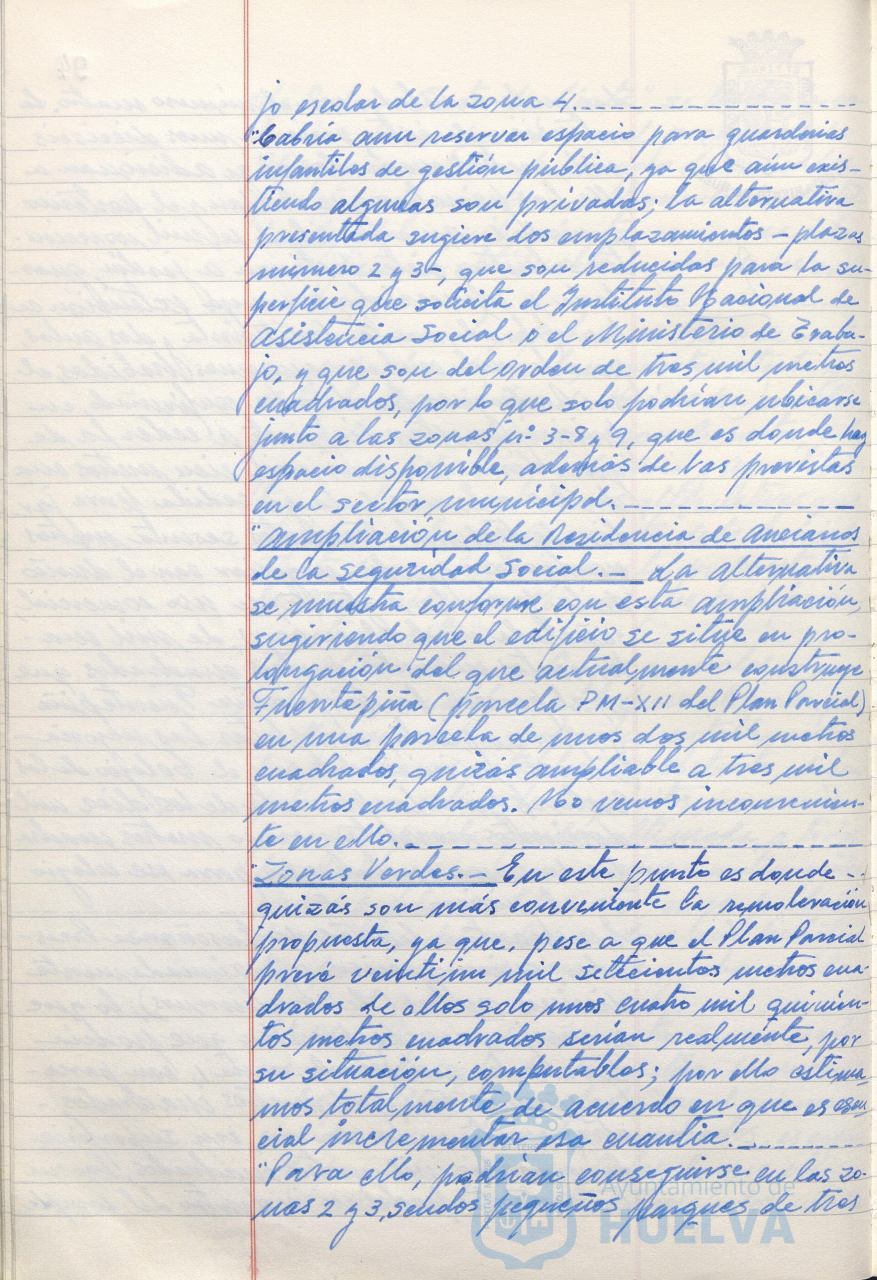 jo escolar de la zona 4.
"Cabria aun reservar espacio para guarderias
infantiles de gestión pública, ya que aún exis-
tiendo algunas son privadas; la alternativa
presentada sugiere dos emplazamientos - plazas
número 2 y 3-, que son reducidas para la su-
perficie que solicita el Instituto Nacional de
Asistencia Social o el Ministerio de Traba-
jo, y que son del orden de tres mil metros
cuadrados, por lo que solo podrían ubicarse
junto a las zonas nº 3-8 y 9, que es donde hay
espacio disponible, además de las previstas
en el sector municipal.
"Ampliación de la Residencia de Ancianos
de la Seguridad Social.- La alternativa
se muestra conforme con esta ampliación,
sugiriendo que el edificio se sitúe en pro-
longación del que actualmente construye
Fuentepiña (parcela PM-XII del Plan Parcial)
en una parcela de unos dos mil metros
cuadrados, quizás ampliable a tres mil
metros cuadrados. No vemos inconvenien-
te en ello.
"Zonas Verdes.- En este punto es donde -
quizás son más conveniente la remodelación
propuesta, ya que, pese a que el Plan Parcial
prevé veintiun mil setecientos metros cua-
drados de ellos solo unos cuatro mil quinien-
tos metros cuadrados serían realmente, por
su situación, computables; por ello estima-
mos totalmente de acuerdo en que es esen-
cial incrementar esa cuantía.
"Para ello, podrían conseguirse en las zo-
nas 2 y 3, sendos pequeños parques de tres
Ayuntamiento de
HUELVA